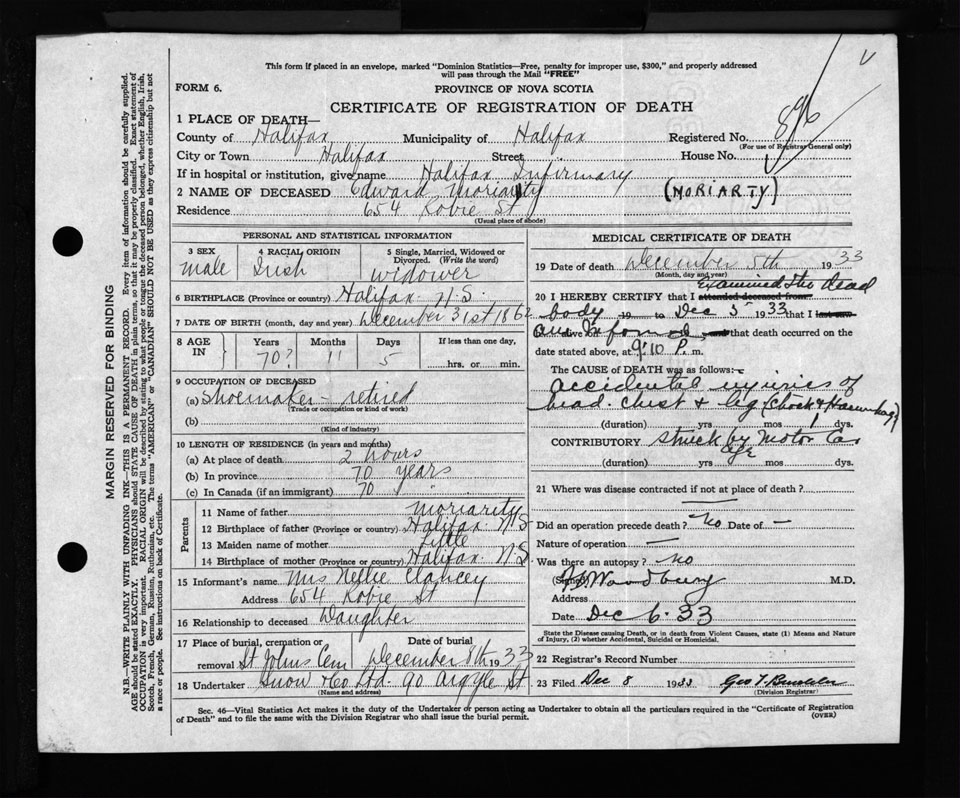 This form if placed in an envelope, marked "Dominion Statistics—Free, penalty for improper use, $300," and properly addressed
will pass through the Mail "FREE"
FORM 6.
PROVINCE OF NOVA SCOTIA
CERTIFICATE OF REGISTRATION OF DEATH
896
1 PLACE OF DEATH—
County of Halifax Municipality of Halifax Registered No.
(For use of Registrar General only)
City or Town Halifax Street House No.
If in hospital or institution, give name Halifax Infirmary
2 NAME OF DECEASED Edward Moriarity (MORIARTY)
Residence 654 Robie St
(Usual place of abode)
PERSONAL AND STATISTICAL INFORMATION
3 SEX 4 RACIAL ORIGIN 5 Single, Married, Widowed or
Divorced. (Write the word)
male Irish widower
6 BIRTHPLACE (Province or country) Halifax N.S.
7 DATE OF BIRTH (month, day and year) December 31st 1862
8 AGE IN Years Months Days If less than one day,
70? 11 5 hrs. or min.
9 OCCUPATION OF DECEASED
(a) Shoemaker – retired
(Trade or occupation or kind of work)
(b)
(Kind of industry)
10 LENGTH OF RESIDENCE (in years and months)
(a) At place of death 2 hours
(b) In province 70 years
(c) In Canada (if an immigrant) 70 "
Parents
11 Name of father Moriarity
12 Birthplace of father (Province or country) Halifax N.S
13 Maiden name of mother Little
14 Birthplace of mother (Province or country) Halifax N.S
15 Informant's name Mrs Nellie Clancey
Address 654 Robie St
16 Relationship to deceased Daughter
17 Place of burial, cremation or Date of burial
removal St Johns Cem December 8th 1933
18 Undertaker Snow & Co Ltd. 90 Argyle St
(Name and address)
MEDICAL CERTIFICATE OF DEATH
19 Date of death December 5th 1933
(Month, day and year)
Examined the dead
20 I HEREBY CERTIFY that I attended deceased from
body 19 to Dec 5 1933 that I last saw
and informed and that death occurred on the
date stated above, at 9:10 P. m.
The CAUSE OF DEATH was as follows:—
accidental injuries of
head. chest & leg (Shock & Haemorrhage)
(duration) yrs mos 1 dys.
CONTRIBUTORY struck by Motor Car
age
(duration) yrs mos dys.
21 Where was disease contracted if not at place of death?
Did an operation precede death? No Date of —
Nature of operation —
Was there an autopsy? no
Woodbury M.D.
Address
Date Dec 6. 33
State the Disease causing Death, or in death from Violent Causes, state (1) Means and Nature
of Injury, (2) whether Accidental, Suicidal or Homicidal.
22 Registrar's Record Number
23 Filed Dec 8 1933 Geo T.
(Division Registrar)
Sec. 46—Vital Statistics Act makes it the duty of the Undertaker or person acting as Undertaker to obtain all the particulars required in the "Certificate of Registration
of Death" and to file the same with the Division Registrar who shall issue the burial permit.
(OVER)
MARGIN RESERVED FOR BINDING
N.B.—WRITE PLAINLY WITH UNFADING INK—THIS IS A PERMANENT RECORD. Every item of information should be carefully supplied.
AGE should be stated EXACTLY. PHYSICIANS should STATE CAUSE OF DEATH in plain terms, so that it may be properly classified. Exact statement of
OCCUPATION is very important. RACIAL ORIGIN will be described by stating to what people or tongue the deceased person belonged, whether English, Irish,
Scotch, French, German, Russian, Ruthenian, etc. The terms "AMERICAN" or "CANADIAN" SHOULD NOT BE USED as they express citizenship but not
a race or people. See instructions on back of Certificate.